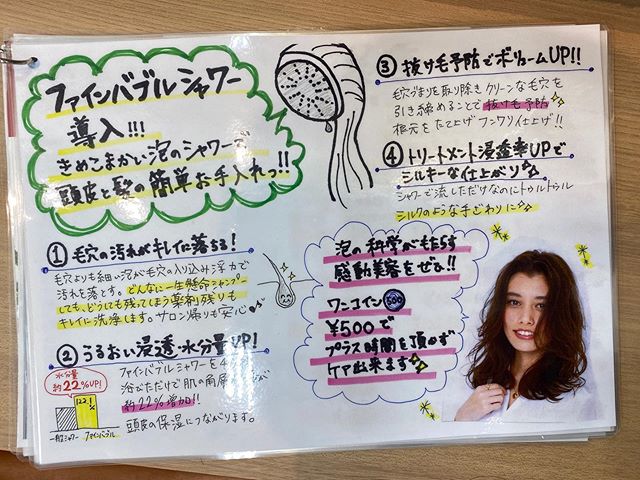 ファインバブルシャワー
導入!!!
きめこまかい泡のシャワーで
頭皮と髪の簡単お手入れっ!!
① 毛穴の汚れがキレイに落ちる!
毛穴よりも細い泡が毛穴の入り込み浮力で
汚れを落とす。どんなに一生懸命シャンプー
しても、どうしても残ってしまう薬剤残りも
キレイに洗浄します。サロン帰りも安心♪
② うるおい浸透・水分量UP!
ファインバブルシャワーを
浴びただけで肌の角
約22%増加!!
頭皮の保湿につながります。
水分量
約22%UP!
122.1
%
一般シャワー ファインバブル
③ 抜け毛予防でボリュームUP!!
毛穴づまりを取り除きクリーンな毛穴を
引き締めることで抜け毛予防
根元をたて上げフンワリ仕上げ!!
④ トリートメント浸透率UPで
シルキーな仕上がり
シャワーで流しただけなのにトゥルトゥル
シルクのような手ざわりに
泡の科学がもたらす
感動美髪をぜひ!!
ワンコイン 500
¥500で
プラス時間を頂かず
ケア出来ます